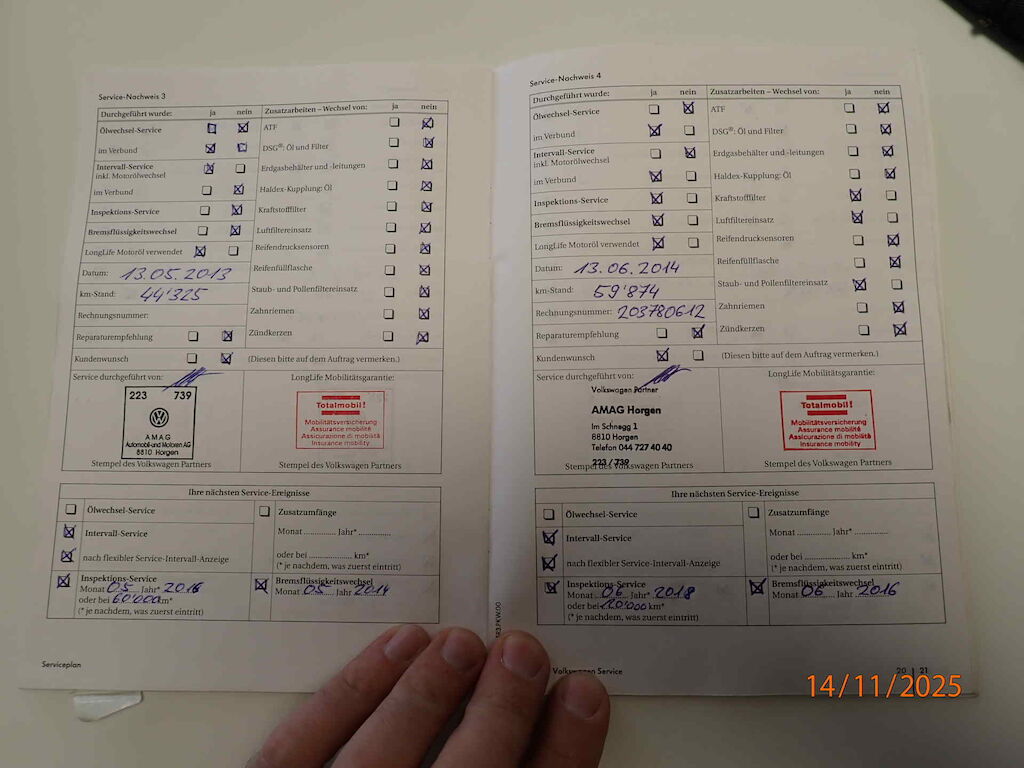 Service-Nachweis 3
Durchgeführt wurde: ja nein
Ölwechsel-Service
im Verbund
Intervall-Service
inkl. Motorölwechsel
im Verbund
Inspektions-Service
Bremsflüssigkeitswechsel
LongLife Motoröl verwendet
Datum: 13.05.2013
km-Stand: 44'325
Rechnungsnummer:
Reparaturempfehlung
Kundenwunsch
Zusatzarbeiten – Wechsel von: ja nein
ATF
DSG®: Öl und Filter
Erdgasbehälter und -leitungen
Haldex-Kupplung: Öl
Kraftstofffilter
Luftfiltereinsatz
Reifendrucksensoren
Reifenfüllflasche
Staub- und Pollenfiltereinsatz
Zahnriemen
Zündkerzen
(Diesen bitte auf dem Auftrag vermerken.)
Service durchgeführt von:
223 739
AMAG
Automobil-und Motoren AG
8810 Horgen
Stempel des Volkswagen Partners
LongLife Mobilitätsgarantie:
Totalmobil!
Mobilitätsversicherung
Assurance mobilité
Assicurazione di mobilità
Insurance mobility
Stempel des Volkswagen Partners
Ihre nächsten Service-Ereignisse
Ölwechsel-Service
Intervall-Service
nach flexibler Service-Intervall-Anzeige
Inspektions-Service
Monat 05 Jahr* 2016
oder bei 60'000 km*
(* je nachdem, was zuerst eintritt)
Zusatzumfänge
Monat ............... Jahr* ..............
oder bei ...................... km*
(* je nachdem, was zuerst eintritt)
Bremsflüssigkeitswechsel
Monat 05 Jahr 2014
Serviceplan
Service-Nachweis 4
Durchgeführt wurde: ja nein
Ölwechsel-Service
im Verbund
Intervall-Service
inkl. Motorölwechsel
im Verbund
Inspektions-Service
Bremsflüssigkeitswechsel
LongLife Motoröl verwendet
Datum: 13.06.2014
km-Stand: 59'874
Rechnungsnummer: 203780612
Reparaturempfehlung
Kundenwunsch
Zusatzarbeiten – Wechsel von: ja nein
ATF
DSG®: Öl und Filter
Erdgasbehälter und -leitungen
Haldex-Kupplung: Öl
Kraftstofffilter
Luftfiltereinsatz
Reifendrucksensoren
Reifenfüllflasche
Staub- und Pollenfiltereinsatz
Zahnriemen
Zündkerzen
(Diesen bitte auf dem Auftrag vermerken.)
Service durchgeführt von:
Volkswagen Partner
AMAG Horgen
Im Schnegg 1
8810 Horgen
Telefon 044 727 40 40
223 / 739
Stempel des Volkswagen Partners
LongLife Mobilitätsgarantie:
Totalmobil!
Mobilitätsversicherung
Assurance mobilité
Assicurazione di mobilità
Insurance mobility
Stempel des Volkswagen Partners
Ihre nächsten Service-Ereignisse
Ölwechsel-Service
Intervall-Service
nach flexibler Service-Intervall-Anzeige
Inspektions-Service
Monat 06 Jahr* 2018
oder bei 120'000 km*
(* je nachdem, was zuerst eintritt)
Zusatzumfänge
Monat ............... Jahr* ..............
oder bei ...................... km*
(* je nachdem, was zuerst eintritt)
Bremsflüssigkeitswechsel
Monat 06 Jahr 2016
Volkswagen Service
20 | 21
14/11/2025